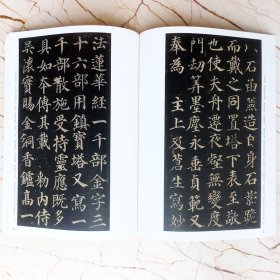 八石函蓋造石影趺
而戴之同置塔下表至敬
也使夫舟遷夜壑無變度
門劫筭墨塵永垂貞範又
奉為 主上及蒼生寫妙
法蓮華經一千部金字三
十六部用鎮寶塔又寫一
千部散施受持靈應既多
具如本傳其載 勑內侍
吳懷實賜金銅香鑪高一